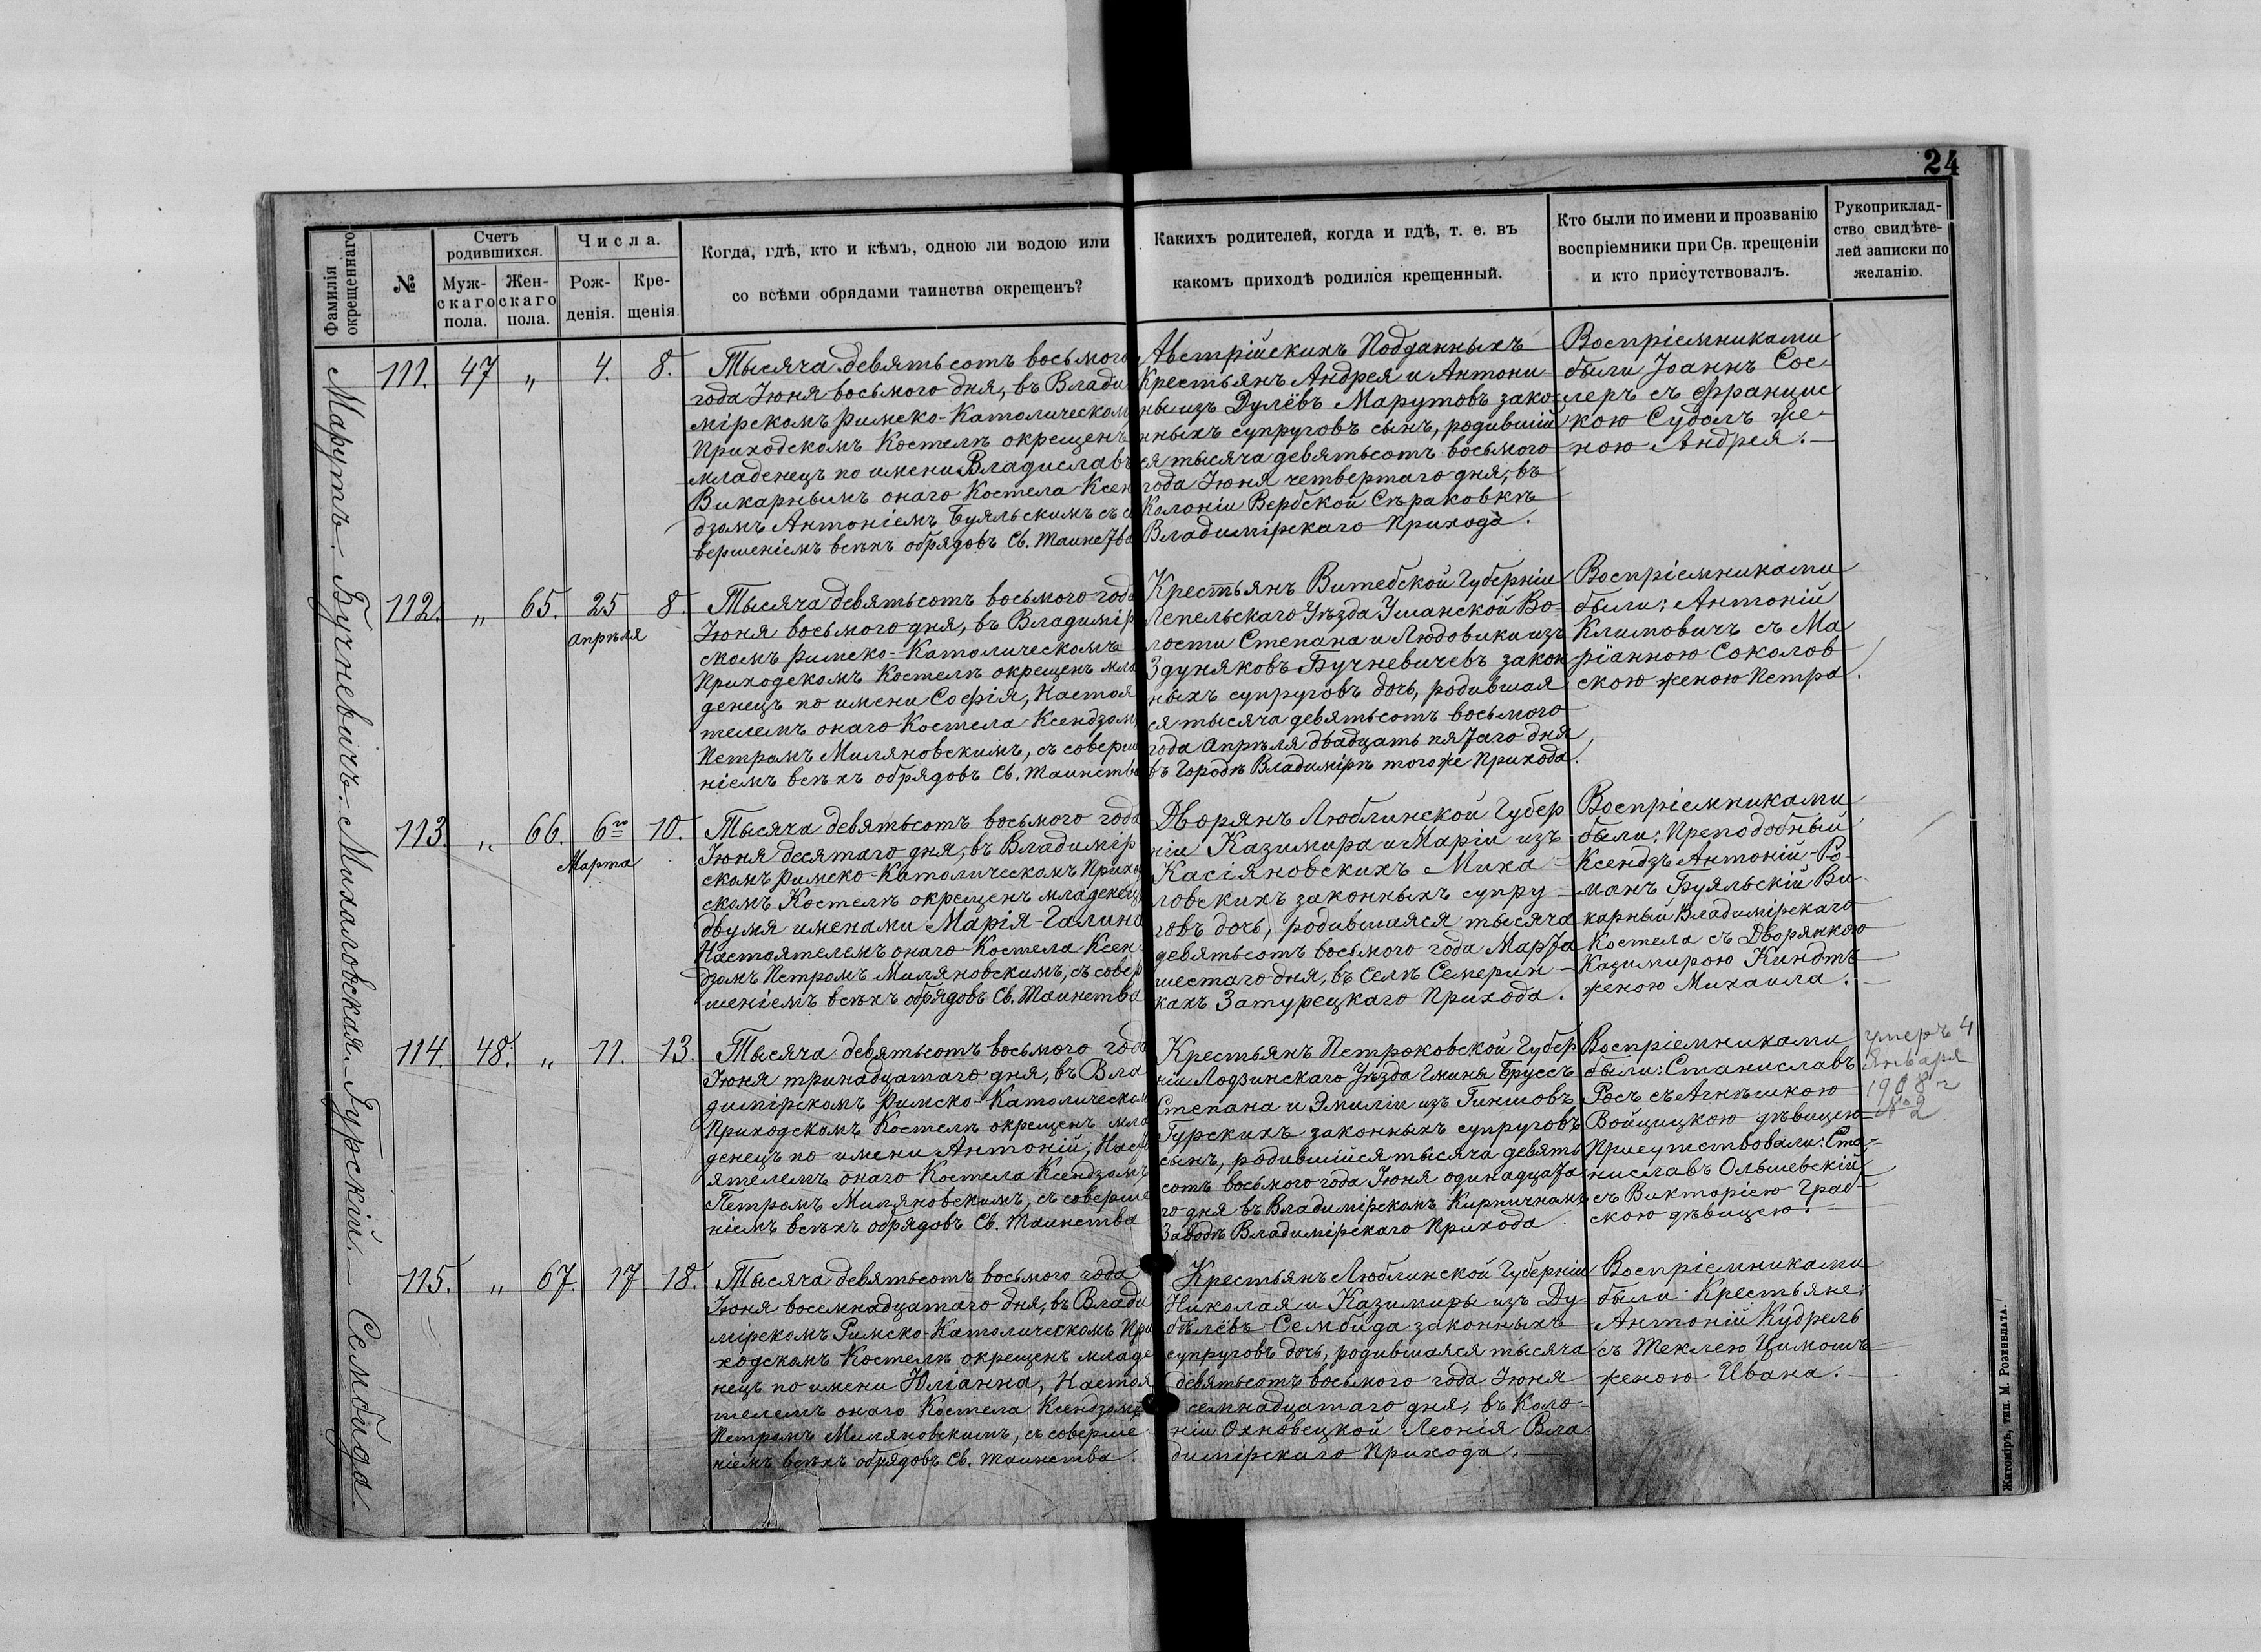 24
Фамилія
окрещеннаго
№
Счетъ
родившихся.
Муж-
скаго
пола.
Жен-
скаго
пола.
Числа.
Рож-
денія.
Кре-
щенія.
Когда, гдѣ, кто и кѣмъ, одною ли водою или
со всѣми обрядами таинства окрещенъ?
Какихъ родителей, когда и гдѣ, т. е. въ
какомъ приходѣ родился крещенный.
Кто были по имени и прозванію
воспріемники при Св. крещеніи
и кто присутствовалъ.
Рукоприклад-
ство свидѣте-
лей записки по
желанію.
Марутъ.
111. 47 „ 4. 8.
Тысяча девятьсотъ восьмого
года Іюня восьмого дня, въ Влади
мірскомъ Римско-Католическом
Приходскомъ Костелѣ окрещенъ
младенецъ по имени Владиславъ
Викарнымъ онаго Костела Ксен
дзомъ Антоніемъ Буяльскимъ съ со
вершеніемъ всѣхъ обрядовъ Св. Таинства
Австрійскихъ Подданныхъ
Крестьянъ Андрея и Антони-
ны изъ Дулёвъ Марутовъ зако-
нныхъ супруговъ сынъ, родившій
ся тысяча девятьсотъ восьмого
года Іюня четвертаго дня, въ
Колоніи Вербской Сѣраковкѣ
Владимірскаго Прихода.
Воспріемниками
были Іоаннъ Сос-
леръ съ Францис
кою Судолъ же-
ною Андрея.—
Бучневичъ.
112. „ 65. 25 8.
Апрѣля
Тысяча девятьсотъ восьмого года
Іюня восьмого дня, въ Владимір
скомъ Римско-Католическомъ
Приходскомъ Костелѣ окрещенъ мла
денецъ по имени Софія, Настоя
телемъ онаго Костела Ксендзомъ
Петромъ Миляновскимъ, съ соверше
ніемъ всѣхъ обрядовъ Св. Таинства
Крестьянъ Витебской Губерніи
Лепельскаго Уѣзда Ушанской Во-
лости Степана и Людовики изъ
Здуняковъ Бучневичевъ закон
ныхъ супруговъ дочь, родившая
ся тысяча девятьсотъ восьмого
года Апрѣля двадцать пятаго дня,
въ Городѣ Владимірѣ тогоже Прихода.
Воспріемниками
были: Антоній
Климовичъ съ Ма
ріанною Соколов
скою женою Петра.
Михаловская.
113. „ 66. 6го 10.
Марта
Тысяча девятьсотъ восьмого года
Іюня десятаго дня, въ Владимір
скомъ Римско-Католическомъ Приход
скомъ Костелѣ окрещенъ младенецъ
двумя именами Марія-Галина
Настоятелемъ онаго Костела Ксен-
дзомъ Петромъ Миляновскимъ, съ совер
шеніемъ всѣхъ обрядовъ Св. Таинства
Дворянъ Люблинской Губер
ніи Казимира и Маріи изъ
Касіяновскихъ Миха-
ловскихъ законныхъ супру-
говъ дочь, родившаяся тысяча
девятьсотъ восьмого года Марта
шестаго дня, въ селѣ Семерин-
кахъ Затурецкаго Прихода.
Воспріемниками
были: Преподобный
Ксендзъ Антоній-Ро-
манъ Буяльскій Ви-
карный Владимірскаго
Костела съ Дворянкою
Казимирою Киндтъ
женою Михаила.—
Гурскій.—
114. 48. „ 11. 13.
Тысяча девятьсотъ восьмого года
Іюня тринадцатаго дня, въ Вла
димірскомъ Римско-Католическом
Приходскомъ Костелѣ окрещенъ мла
денецъ по имени Антоній, Насто
ятелемъ онаго Костела Ксендзомъ
Петромъ Миляновскимъ, съ соверше
ніемъ всѣхъ обрядовъ Св. Таинства
Крестьянъ Петроковской Губер
ніи Лодзинскаго Уѣзда Гмины Бруссъ
Степана и Эмиліи изъ Гиншовъ
Гурскихъ законныхъ супруговъ
сынъ, родившійся тысяча девять
сотъ восьмого года Іюня одинадцата
го дня въ Владимірскомъ Кирпичномъ
Заводѣ Владимірскаго Прихода.
Воспріемниками
были: Станиславъ
Росъ съ Агнѣшкою
Войцицкою дѣвицею
Присутствовали: Ста-
ниславъ Ольшевскій
съ Викторіею Граб-
скою дѣвицею.
Умеръ 4
Января
1908 г
№ 2
Сембида
115. „ 67. 17 18.
Тысяча девятьсотъ восьмого года
Іюня восемнадцатаго дня, въ Влади
мірскомъ Римско-Католическомъ При
ходскомъ Костелѣ окрещенъ младе
нецъ по имени Юліанна, Настоя
телемъ онаго Костела Ксендзомъ
Петромъ Миляновскимъ, съ соверше
ніемъ всѣхъ обрядовъ Св. Таинства.
Крестьянъ Люблинской Губерніи
Николая и Казимиры изъ Ду-
бѣлёвъ Сембида законныхъ
супруговъ дочь, родившаяся тысяча
девятьсотъ восьмого года Іюня
семнадцатаго дня, въ Коло-
ніи Охновецкой Леонія Вла-
димірскаго Прихода.—
Воспріемниками
были Крестьяне:
Антоній Кудрель
съ Теклею Цимошъ
женою Ивана.—
Житоміръ, тип. М. Розенблата.